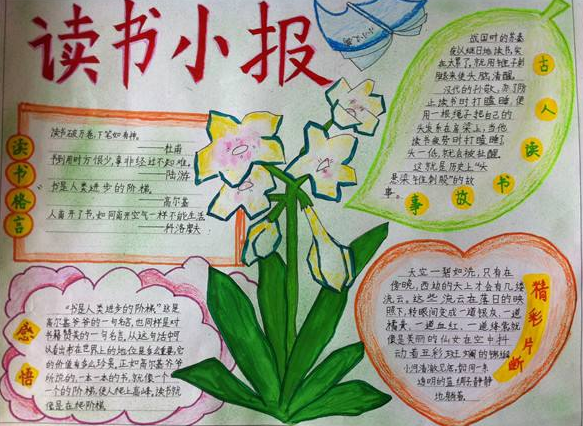 读书小报
读书格言
读书破万卷,下笔如有神。
——杜甫
书到用时方恨少,事非经过不知难。
——陆游
书是人类进步的阶梯。
——高尔基
人离开了书,如同离开空气一样不能生活
——科洛廖夫
古人读书故事
战国时的苏秦
夜以继日地读书,实
在太累了,就用锥子刺
腿来使头脑清醒。
汉代的孙敬,为了防
止读书时打瞌睡,便
用一根绳子把自己的
头发系在房梁上,当他
读书疲劳时打瞌睡了
头一低,就会被扯醒
这就是历史上“头
悬梁 锥刺股”的故
事。
感悟
“书是人类进步的阶梯”这是
高尔基爷爷的一句名言,也同样是对
书籍赞美的一句名言,从这句话中可
以看出书在世界上的地位是多么重要,它
的价值有多么珍贵,正如高尔基爷爷
所说的,一本一本的书,就像一个
一个的阶梯,使人爬上高峰,读书就
像是在爬阶梯
精彩片断
天空一碧如洗,只有在
傍晚,西边的天上才会有几缕
浣云,这些浣云在落日的映
照下,转眼间变成一道银灰、一道
橘黄、一道血红、一道绛紫就
像是美丽的仙女在空中抖
动着五彩斑斓的锦缎
小河清澈见底,如同一条
透明的蓝绸子静静
地躺着